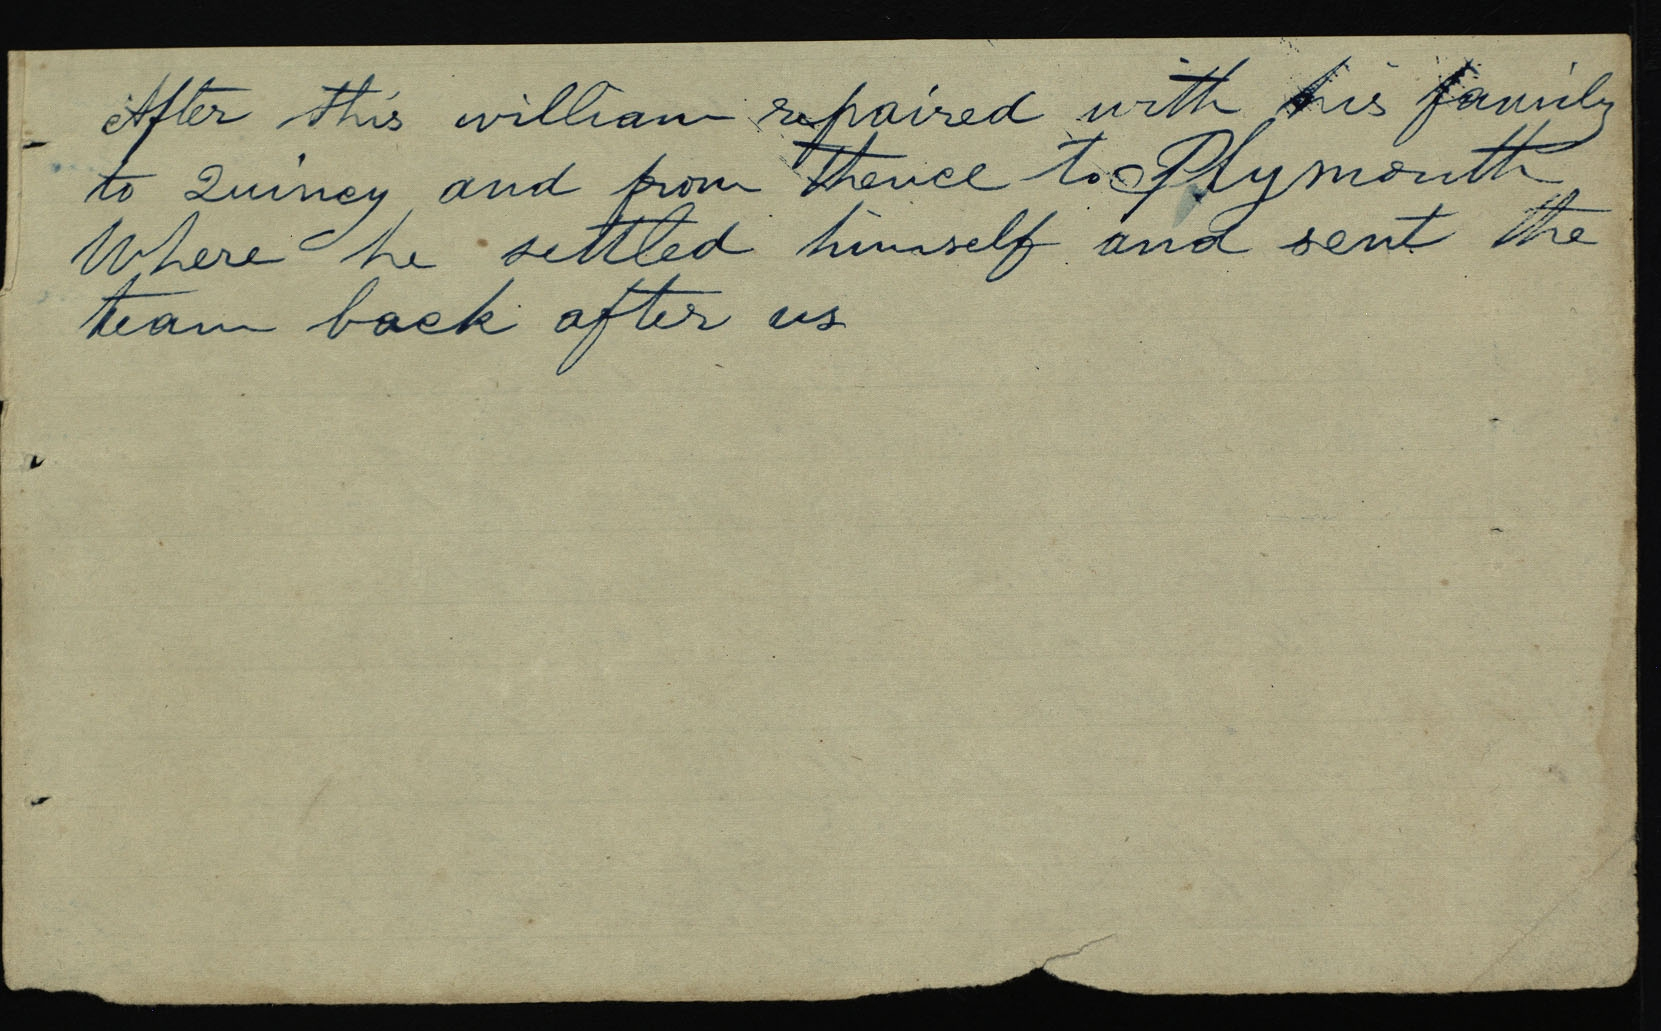 After this william repaired with his family
to Quincy and from thence to Plymouth
Where he settled himself and sent the
team back after us